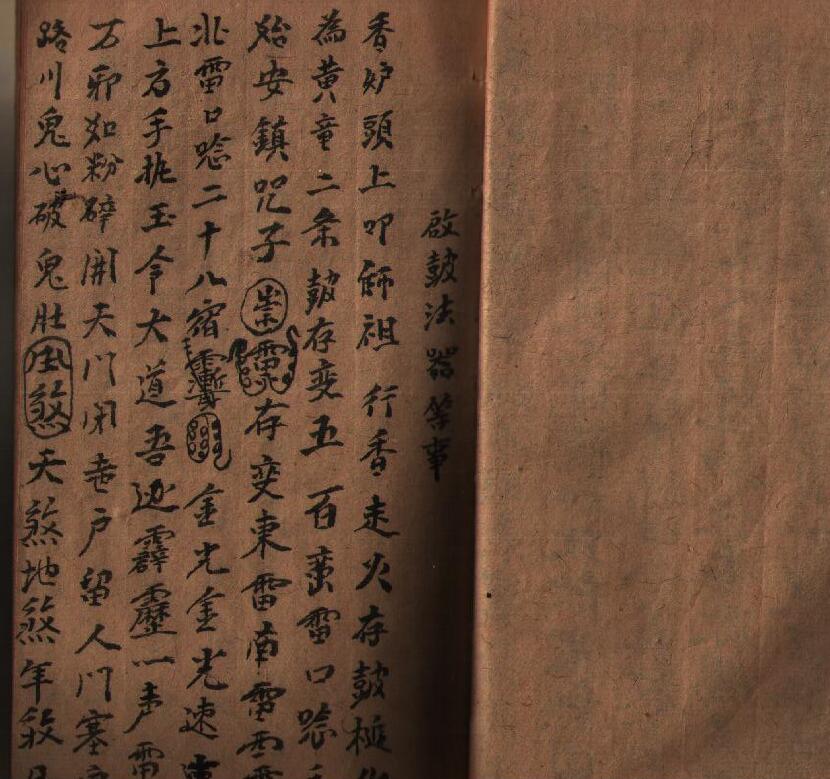 啟鼓法器等事
香炉頭上叩師祖 行香走火存鼓槌
為黃童二条鼓存变五百蛮雷口唸
殆安鎮咒子 存变東雷南雷
北雷口唸二十八宿 金光金光速
上方手執玉令大道吾 霹靂一声雷
万邪如粉碎開天门闭 户留人门塞
路川鬼心破鬼肚 煞天煞地煞年殺